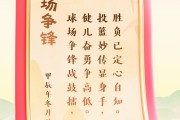 场争锋
甲辰年
球场争锋战鼓擂，
健儿奋勇争高低。
投篮妙传显身手，
胜负已定心自知。